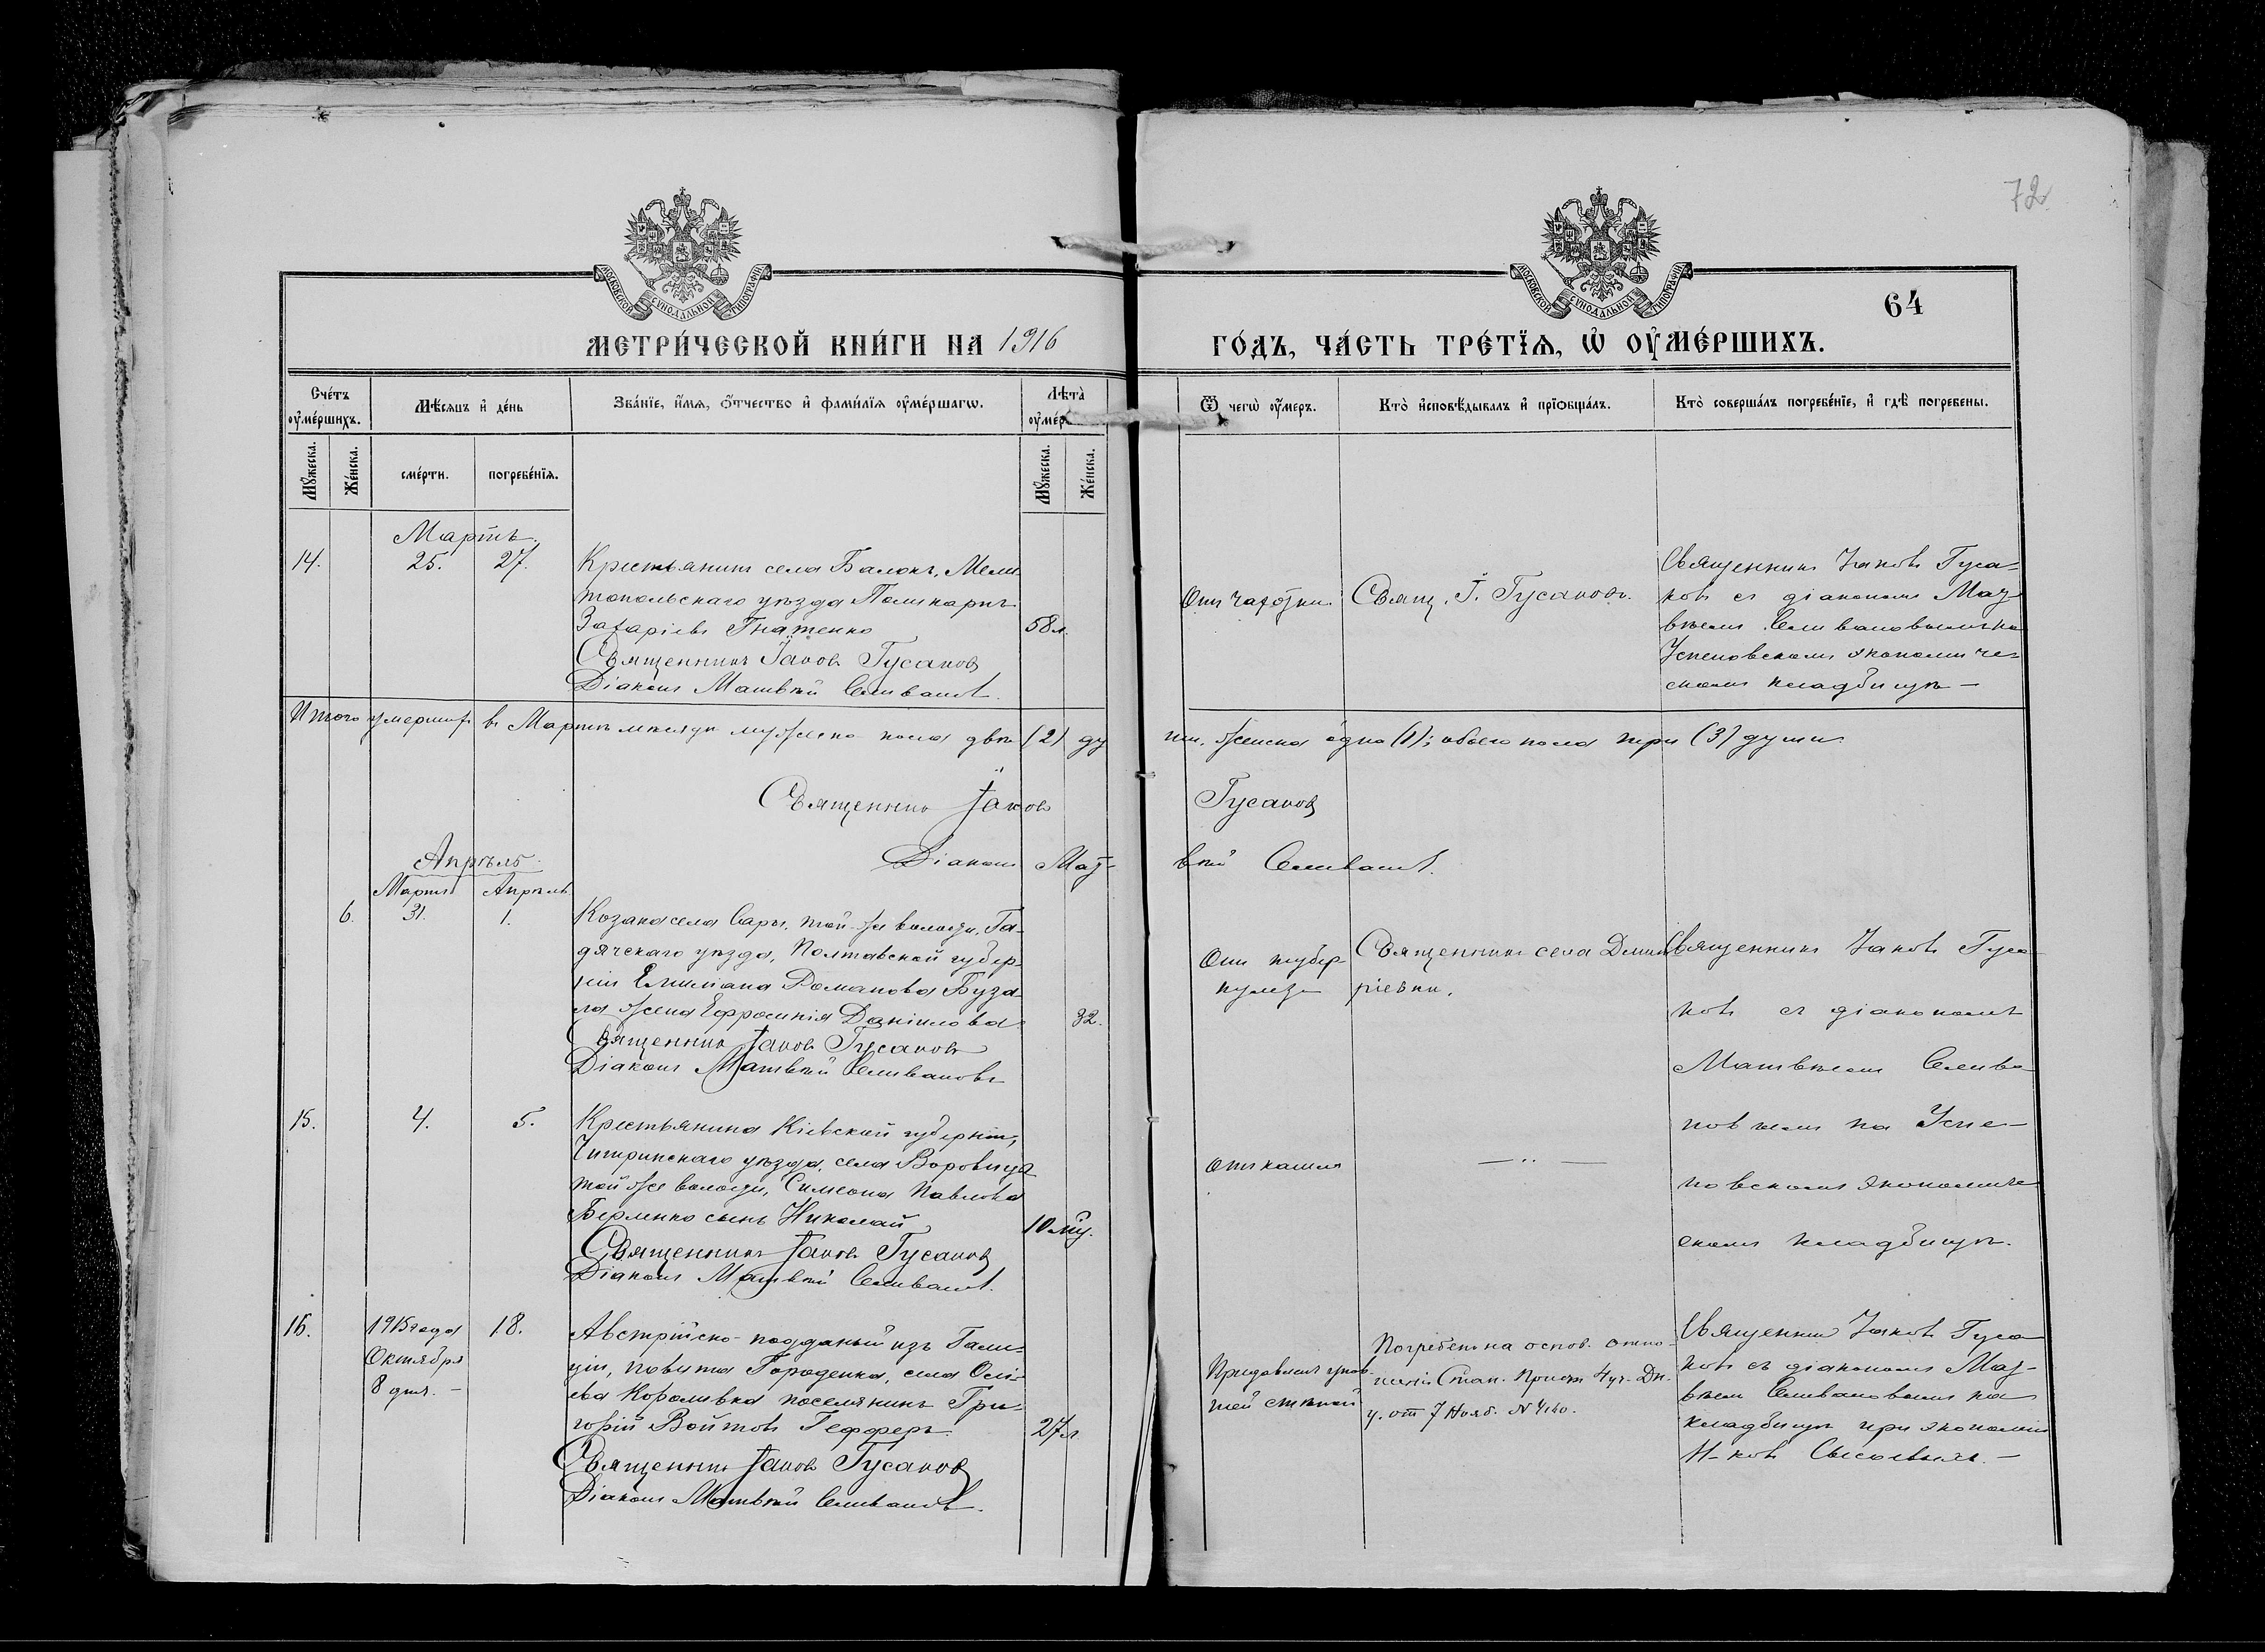 72
МОСКОВСКОЙ СѴНОДАЛЬНОЙ ТИПОГРАФІИ
МОСКОВСКОЙ СѴНОДАЛЬНОЙ ТИПОГРАФІИ
64
МЕТРИ́ЧЕСКОЙ КНИ́ГИ НА 1916 ГО́ДЪ, ЧА́СТЬ ТРЕ́ТЇѦ, Ѡ҆ ОУ҆МЕ́РШИХЪ.
Сче́тъ оу҆ме́ршихъ.
Мꙋ́жеска.
Же́нска.
Мѣ́сяцъ и҆ де́нь
сме́рти.
погребе́нїѧ.
Зва́нїе, и҆́мѧ, ѻ҆́тчество и҆ фами́лїѧ оу҆ме́ршагѡ.
Лѣ́та оу҆ме́р
Мꙋ́жеска.
Же́нска.
Ѿ чегѡ̀ оу҆́меръ.
Кто̀ и҆сповѣ́дывалъ и҆ прїѻбща́лъ.
Кто̀ соверша́лъ погребе́нїе, и҆ гдѣ̀ погребены.
Мартъ.
14.
25.
27.
Крестьянинъ села Балокъ, Мели-
топольскаго уѣзда Поликарпъ
Захаріевъ Гнатенко
58 л.
Священникъ Іаковъ Гусаковъ
Діаконъ Матвѣй Селивановъ.
Отъ чахотки.
Свящ. І. Гусаковъ.
Священникъ Іаковъ Гуса-
ковъ съ діакономъ Мат-
вѣемъ Селивановымъ на
Успеновскомъ экономиче-
скомъ кладбищѣ —
Итого умершихъ въ Мартѣ мѣсяцѣ мужеска пола двѣ (2) ду
ши, женска одна (1); обоего пола три (3) души.
Священникъ Іаковъ Гусаковъ
Діаконъ Матвѣй Селивановъ.
Апрѣль.
Марта
Апрѣль
6.
31.
1.
Козака села Сары, той-же волости, Га-
дячскаго уѣзда, Полтавской губер-
ніи Емиліана Романова Буза-
ла жена Ефросинія Даніилова
32.
Священникъ Іаковъ Гусаковъ
Діаконъ Матвѣй Селивановъ
Отъ тубер-
кулеза
Священникъ села Дмит
ріевки.
Священникъ Іаковъ Гуса-
ковъ съ діакономъ
Матвѣемъ Селива-
новымъ на Успе-
новскомъ экономиче
скомъ кладбищѣ.
15.
4.
5.
Крестьянина Кіевской губерніи,
Чигиринскаго уѣзда, села Воровица
той же волости, Симеона Павлова
сынъ Николай
10 мц.
Священникъ Іаковъ Гусаковъ
Діаконъ Матвѣй Селивановъ.
Отъ кашля
— ·· —
16.
1915 года
Октября
8 дня. —
18.
Австрійско-подданый изъ Гали-
ціи, повита Городенка, села
Королівка поселянинъ Гри-
горій Войтовъ Гефферъ.
27 л.
Священникъ Іаковъ Гусаковъ
Діаконъ Матвѣй Селивановъ.
Погребенъ на основ. отно-
шенія Стан. Прист. 4 уч. Дн.
у. от 7 Нояб. №
Священникъ Іаковъ Гуса
ковъ съ діакономъ Мат-
вѣемъ Селивановымъ на
кладбищѣ при экономіи